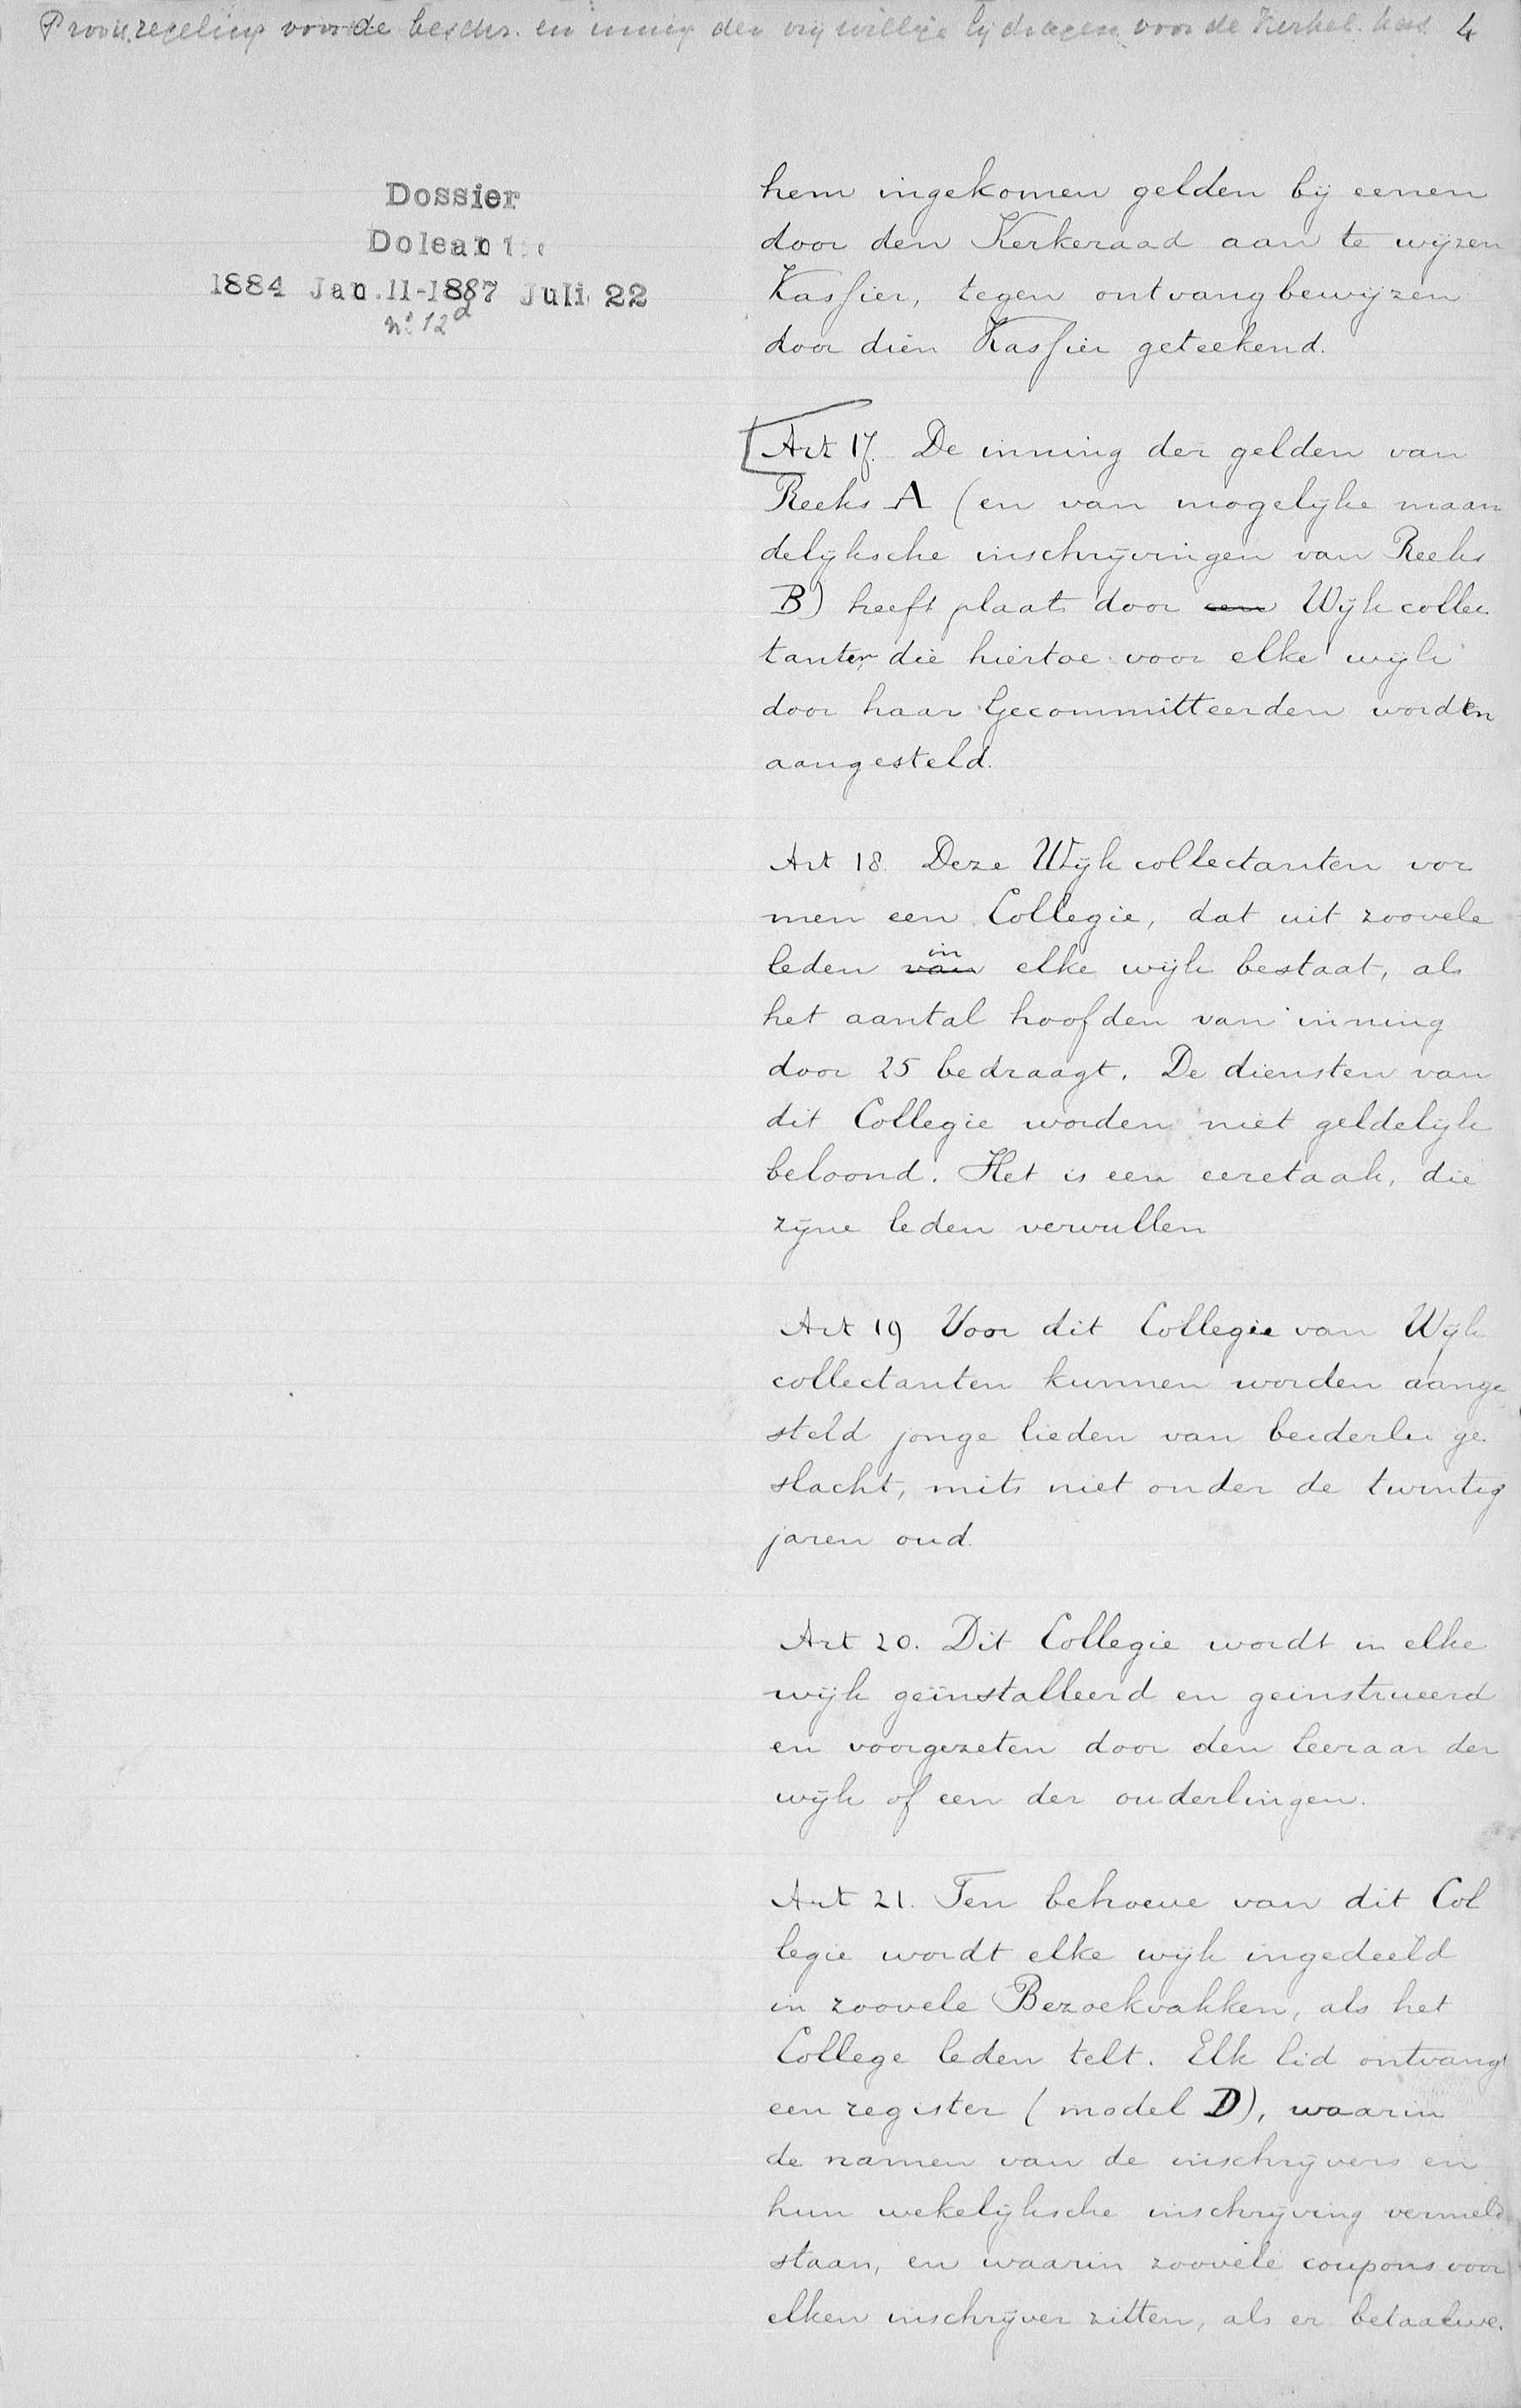 Provis. regeling voor de beschr. en inning der vrijwillige bijdragen voor de Kerkel. kas 4
Dossier
Doleantie
1884 Jan. 11-1887 Juli 22
no 12d
hem ingekomen gelden bij eenen
door den Kerkeraad aan te wijzen
Kassier, tegen ontvangbewijzen
door dien Kassier geteekend.
Art 17. De inning der gelden van
Reeks A (en van mogelijke maan
delijksche inschrijvingen van Reeks
B) heeft plaats door een Wijkcollec
tanten die hiertoe voor elke wijk
door haar Gecommitteerden worden
aangesteld.
Art 18. Deze Wijkcollectanten vor
men een Collegie, dat uit zoovele
in
leden van elke wijk bestaat, als
het aantal hoofden van inning
door 25 bedraagt. De diensten van
dit Collegie worden niet geldelijk
beloond. Het is een eeretaak, die
zijne leden vervullen
Art 19 Voor dit Collegie van Wijk
collectanten kunnen worden aange-
steld jonge lieden van beiderlei ge
slacht, mits niet onder de twintig
jaren oud.
Art 20. Dit Collegie wordt in elke
wijk geïnstalleerd en geinstrueerd
en voorgezeten door den leeraar der
wijk of een der ouderlingen.
Art 21. Ten behoeve van dit Col
legie wordt elke wijk ingedeeld
in zoovele Bezoekvakken, als het
College leden telt. Elk lid ontvangt
een register (model D), waarin
de namen van de inschrijvers en
hun wekelijksche inschrijving vermeld
staan, en waarin zoovele coupons voor
elken inschrijver zitten, als er betaalwe.